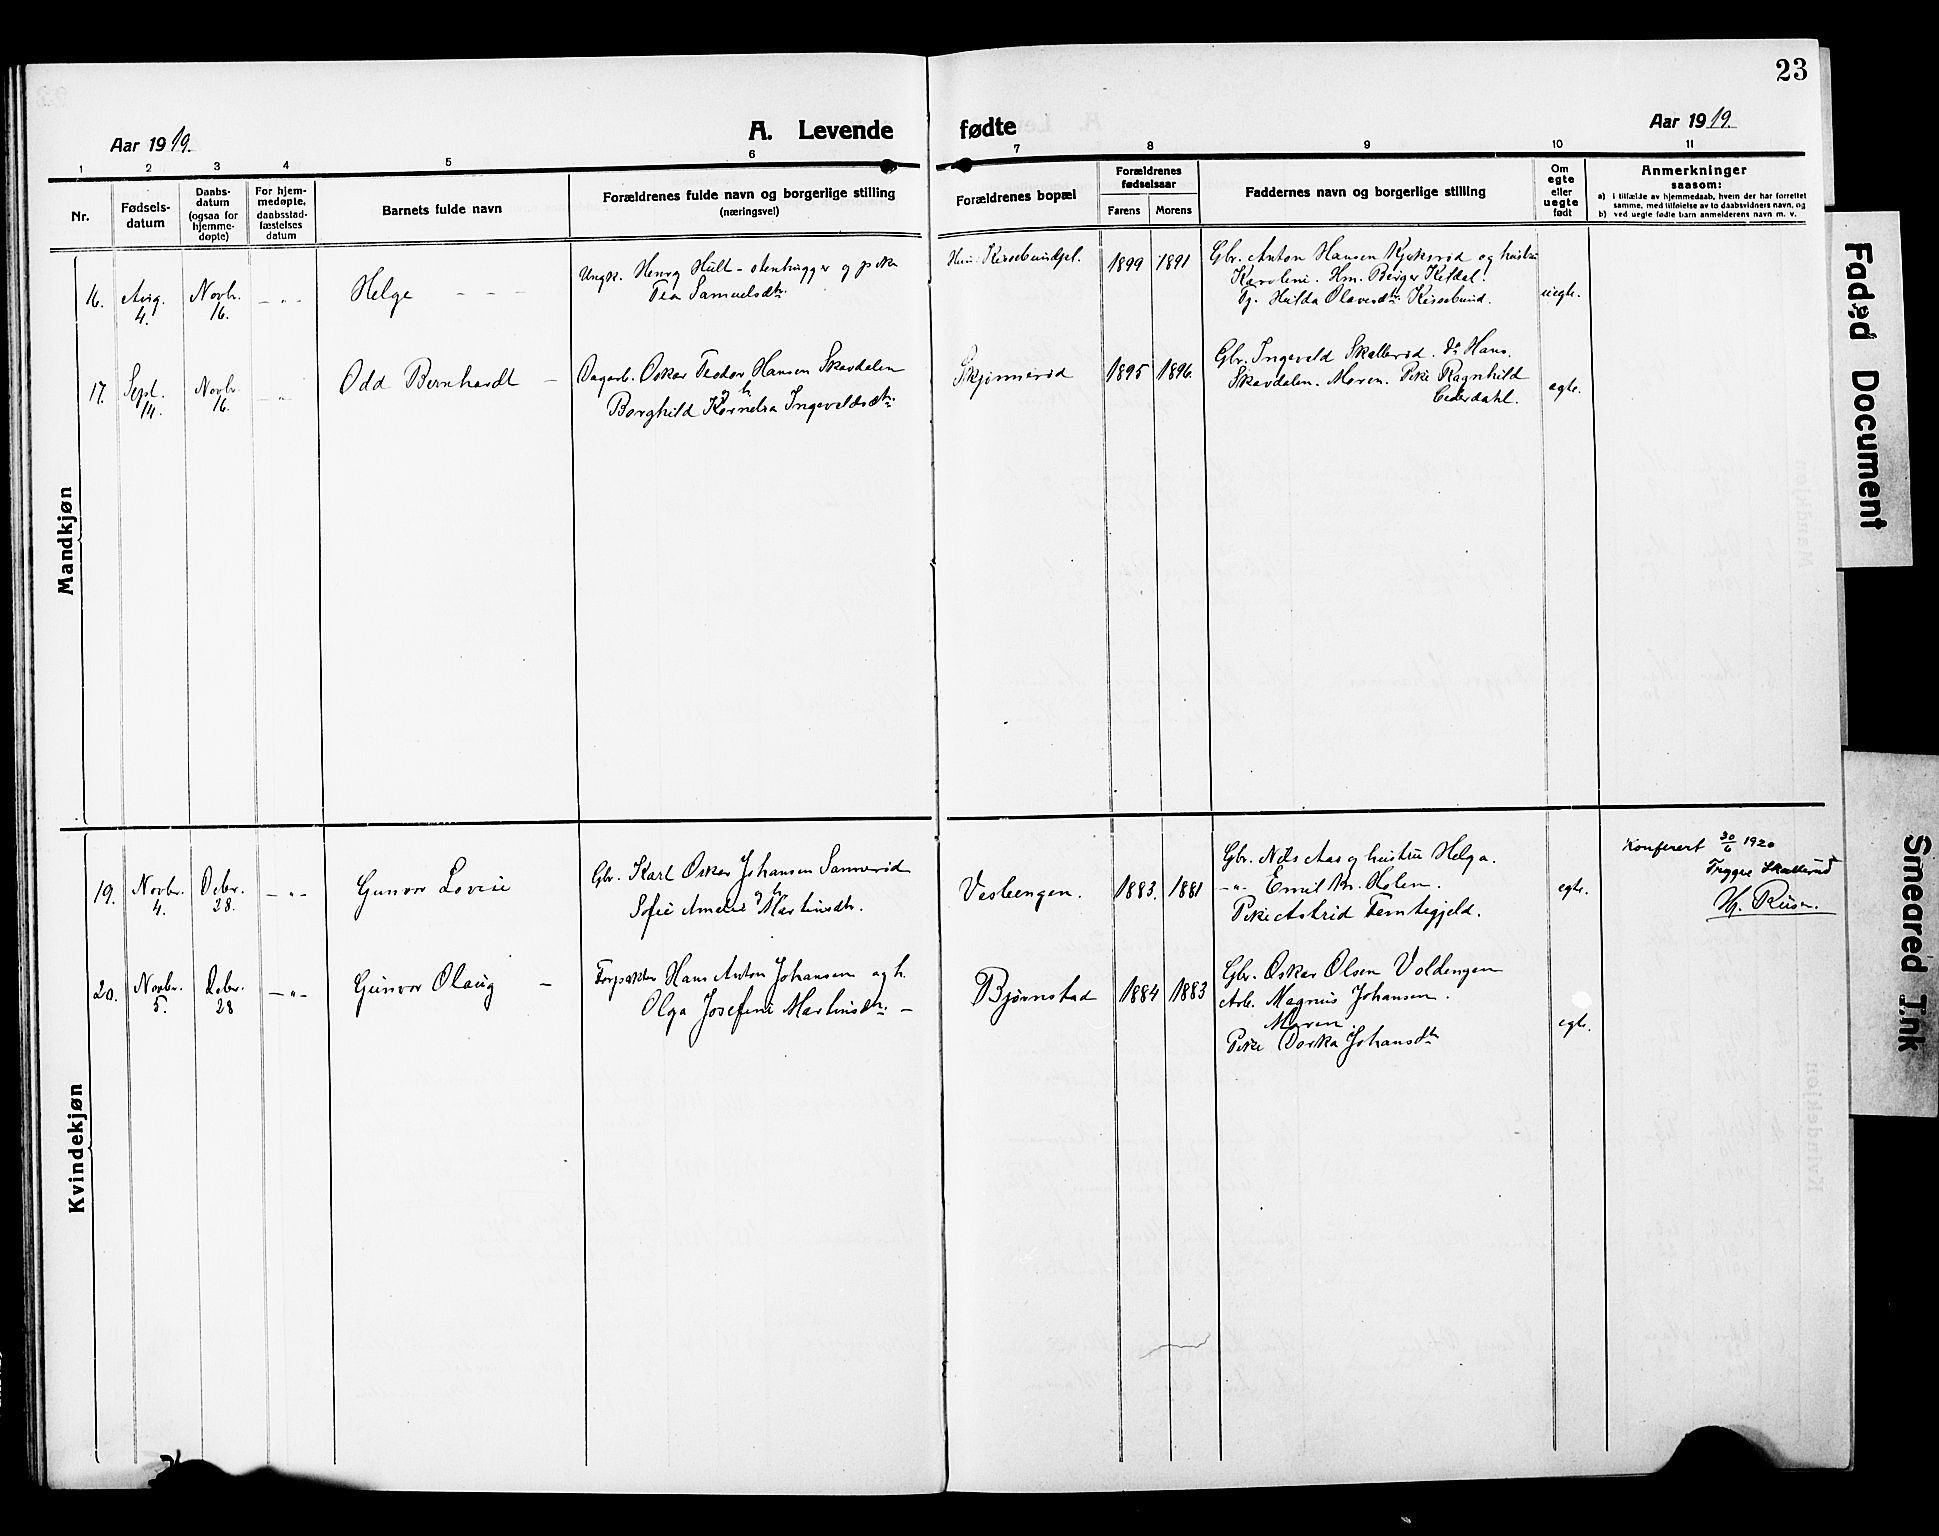 23
Aar 1919.
A. Levende fødte
Aar 1919.
1 2 3 4 5 6 7 8 9 10 11
Nr.
Fødsels-
datum
Daabs-
datum
(ogsaa for
hjemme-
døpte)
For hjem-
medøpte,
daabsstad-
fæstelses
datum
Barnets fulde navn
Forældrenes fulde navn og borgerlige stilling
(næringsvei)
Forældrenes bopæl
Forældrenes
fødselsaar
Farens Morens
Faddernes navn og borgerlige stilling
Om
egte
eller
uegte
født
Anmerkninger
saasom:
a) i tilfælde av hjemmedaab, hvem der har forrettet
samme, med tilføielse av to daabsvidners navn, og
b) ved uegte fødte barn anmelderens navn m. v.
Mandkjøn
16.
Aug.
4.
Novbr.
16.
— „ —
Helge — — —
Ungk. Henry Hult - stenhugger og pike
Tea Samuelsdtr.
Kirsebundfjel.
1899 1891
Gbr. Anton Hansen Kjøksrød og hustru
Karoline. Hm. Birger Kildal.
Tj. Hilda Olavesdtr. Kirsebund.
uegte.
17.
Sept.
14.
Novbr.
16.
„
Odd Bernhardt —
Dagarb. Oskar Teodor Hansen Skavdalen
og h.
Borghild Kornelia Ingeveldsdtr.
Skjønnerød
1895 1896.
Gbr. Ingeveld Skallerød. do Hans
Skavdalen. Maren. Pike Ragnhild
Cederdahl.
egte.
Kvindekjøn
19.
Novbr.
4.
Debr.
28.
— „ —
Gunvor Lovise
Gbr. Karl Oskar Johansen Sannerød
og h.
Sofie Amalie Martinsdtr.
Vestengen.
1883. 1881
Gbr. Nils Aas og hustru Helga.
— „ — Emil Kr. Holen.
Pike Astrid Femtegjeld.
egte.
Konferert 30/6 1920
Trygve Skallerud
20.
Novbr.
5.
Debr.
28
— „ —
Gunvor Olaug —
Forpakter Hans Anton Johansen og h.
Olga Josefine Martinsdtr. —
Bjørnstad
1884 1883
Gbr. Oskar Olsen Voldengen
Arb. Magnus Johansen.
Maren
Pike Dorthea Johansdtr
egte.
Faded Document
Smeared Ink